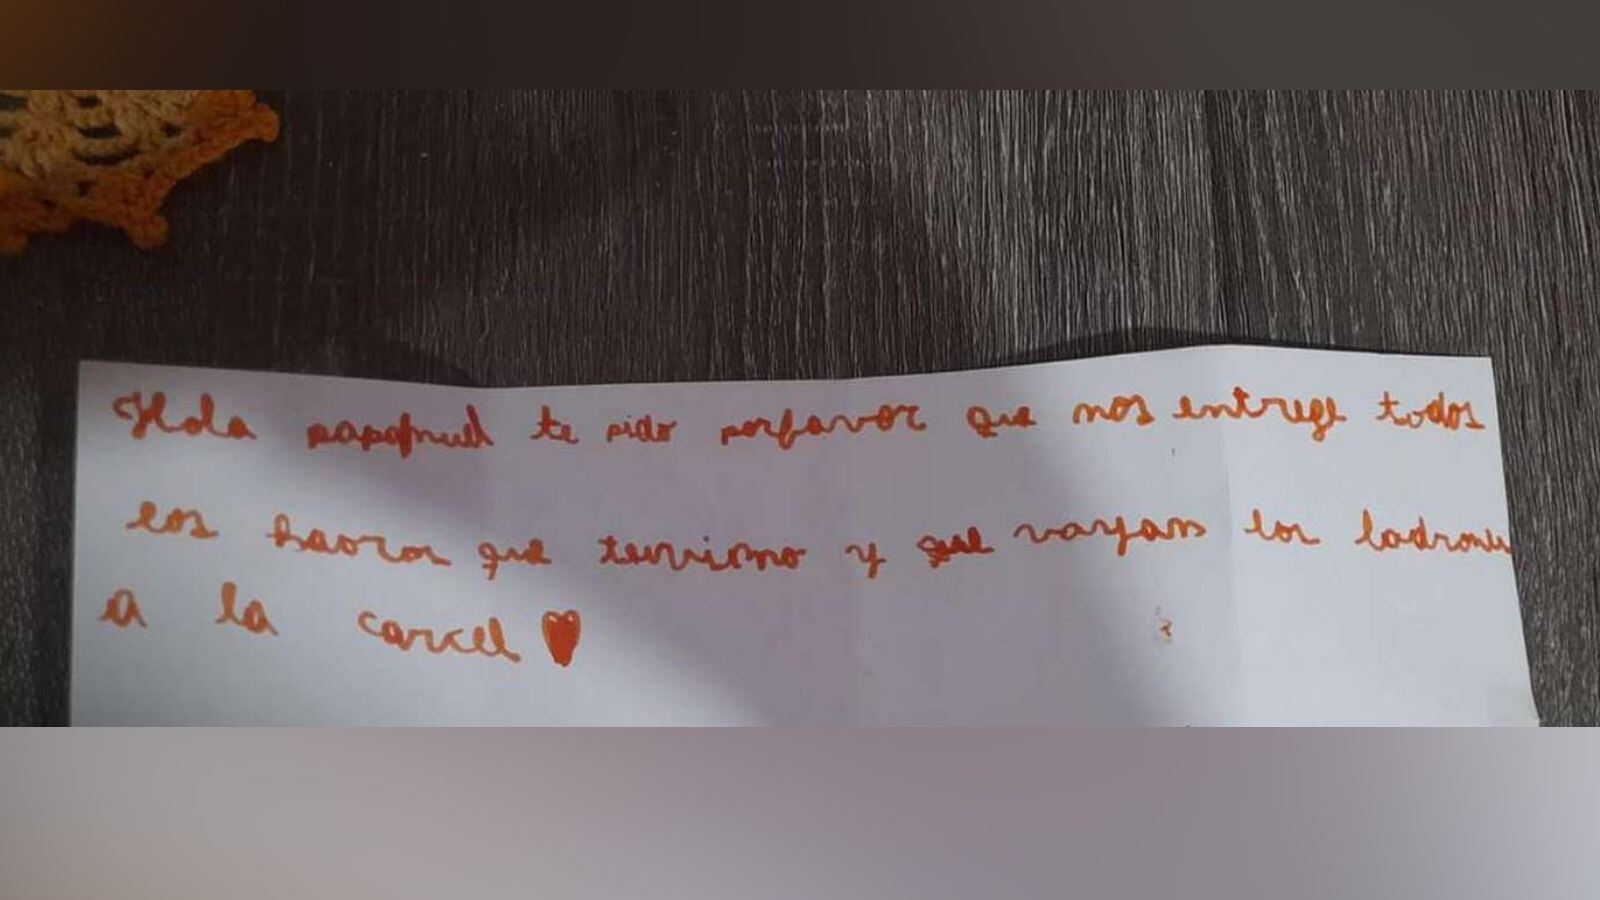 Hola papanuel te pido porfavor que nos entrege todos
los haoros que teniamo y que vayan los ladrones
a la carcel